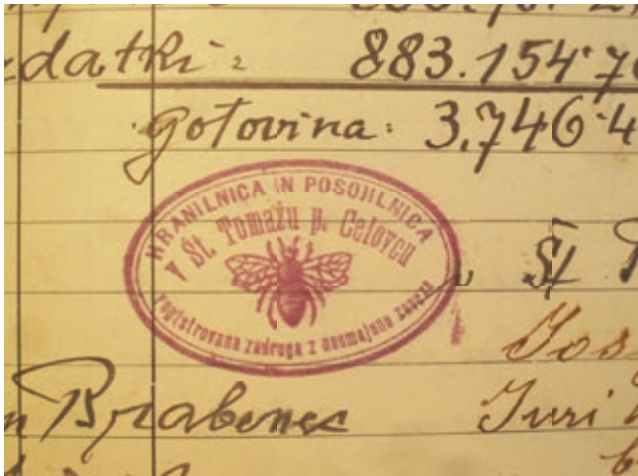 datki:
883.154.7
gotovina: 3.746.4
HRANILNICA IN POSOJILNICA
v Št. Tomažu p. Celovcu
registrovana zadruga z neomejeno zavezo
v Št
Jos
Brabenec
Juri